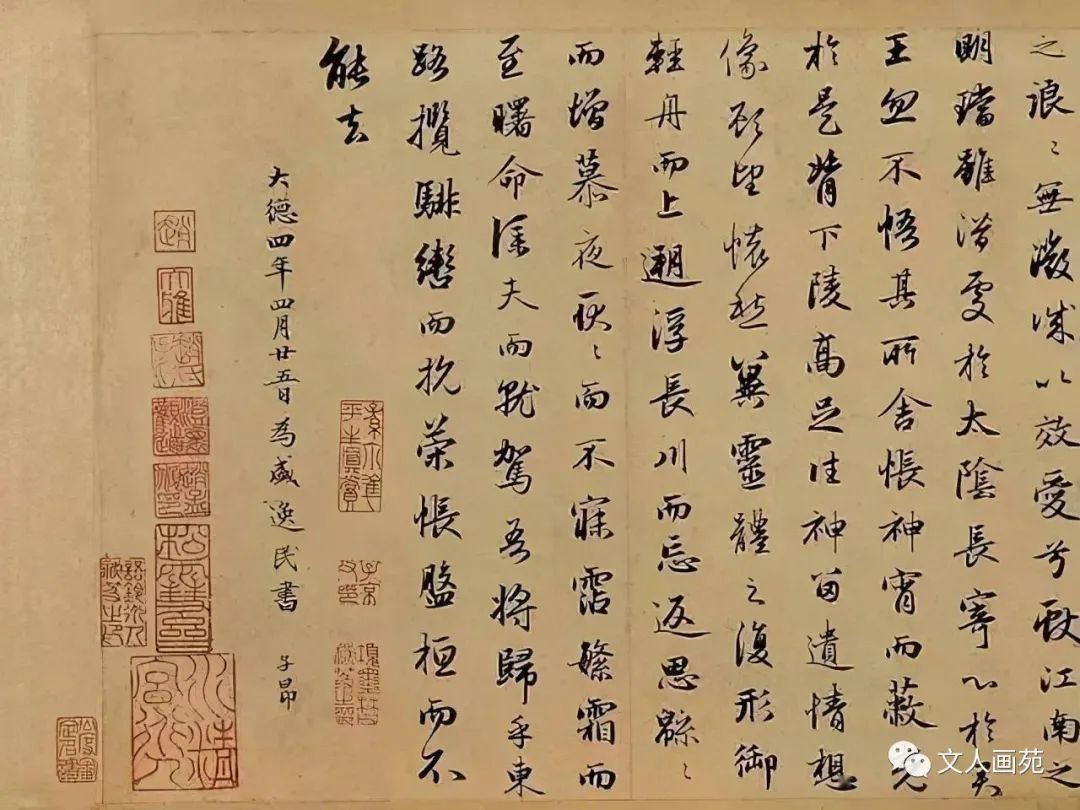 之浪〻無微誠以效愛兮獻江南之
明璫雖潜處於太陰長寄心於君
王忽不悟其所舍悵神宵而蔽光
於是背下陵高足往神留遺情想
像顧望懷愁冀靈體之復形御
輕舟而上遡浮長川而忘返思緜〻
而增慕夜耿〻而不寐霑繁霜而
至曙命僕夫而就駕吾將歸乎東
路攬騑轡而抗策悵盤桓而不
能去
大德四年四月廿五日為盛逸民書 子昂
子京父印
趙
大雅
澄懷觀道
松雪齋
文人画苑